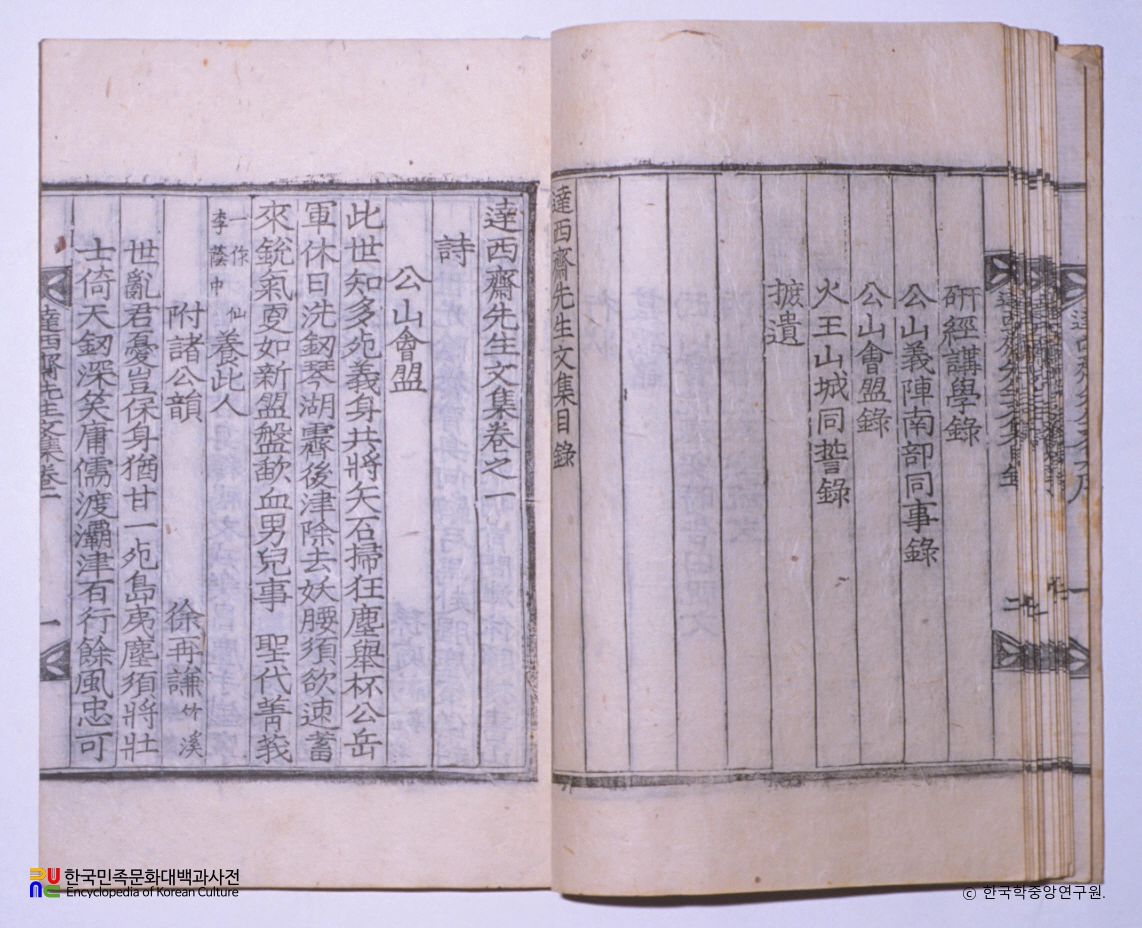 硏經講學錄
公山義陣南部同事錄
公山會盟錄
火王山城同誓錄
摭遺
達西齋先生文集目錄
達西齋先生文集卷之一
詩
公山會盟
此世知多死義身共將矢石掃狂塵擧杯公岳
軍休日洗釰琴湖霽後津除去妖腰須欲速蓄
來銳氣更如新盟盤歃血男兒事 聖代菁莪
一作仙
李蔭中
養此人
附諸公韻 徐再謙 竹溪
世亂君憂豈保身猶甘一死島夷塵須將壯
士倚天釰深笑庸儒渡灞津有行餘風忠可
達西齋先生文集卷一
一
한국민족문화대백과사전
Encyclopedia of Korean Culture
ⓒ 한국학중앙연구원.